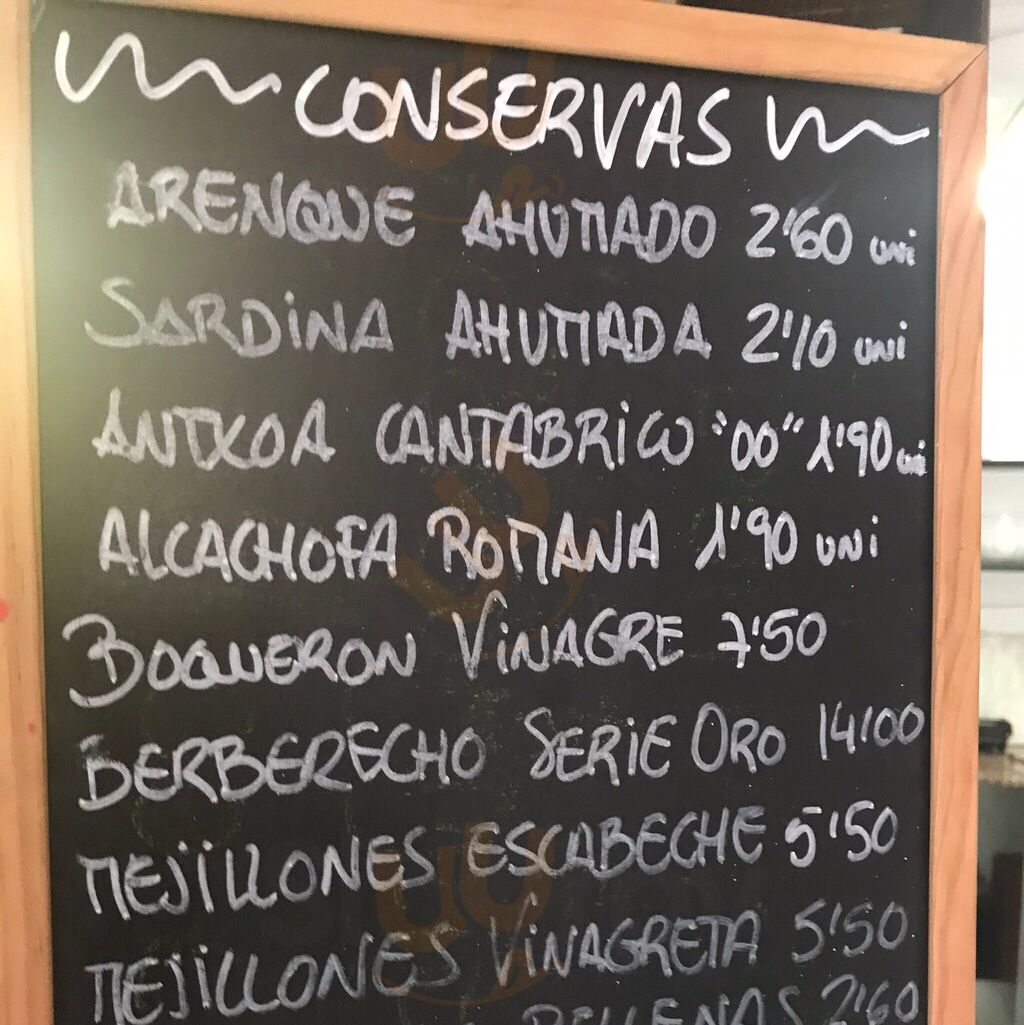 CONSERVAS
ARENQUE AHUMADO 2'60 uni
SARDINA AHUMADA 2'10 uni
ANTXOA CANTABRICO "00" 1'90 uni
ALCACHOFA ROMANA 1'90 uni
BOQUERON VINAGRE 7'50
BERBERECHO SERIE ORO 14'00
MEJILLONES ESCABECHE 5'50
MEJILLONES VINAGRETA 5'50
RELLENAS 2'60